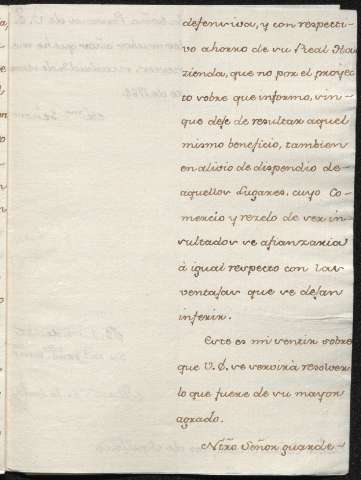 defensiva, y con respecti-
vo ahorro de su Real Ha-
zienda, que no por el proyec-
to sobre que informo, sin-
que deje de resultar aquel
mismo beneficio, tambien
en alivio de dispendio de
aquellos Lugares, cuyo Co-
mercio y rezelo de ser in-
sultados se afianzaria
à igual respecto con las
ventajas que se dejan
inferir.
Este es mi sentir sobre
que V. E. se servirà resolver
lo que fuere de su mayor
agrado.
Ntro Señor guarde-